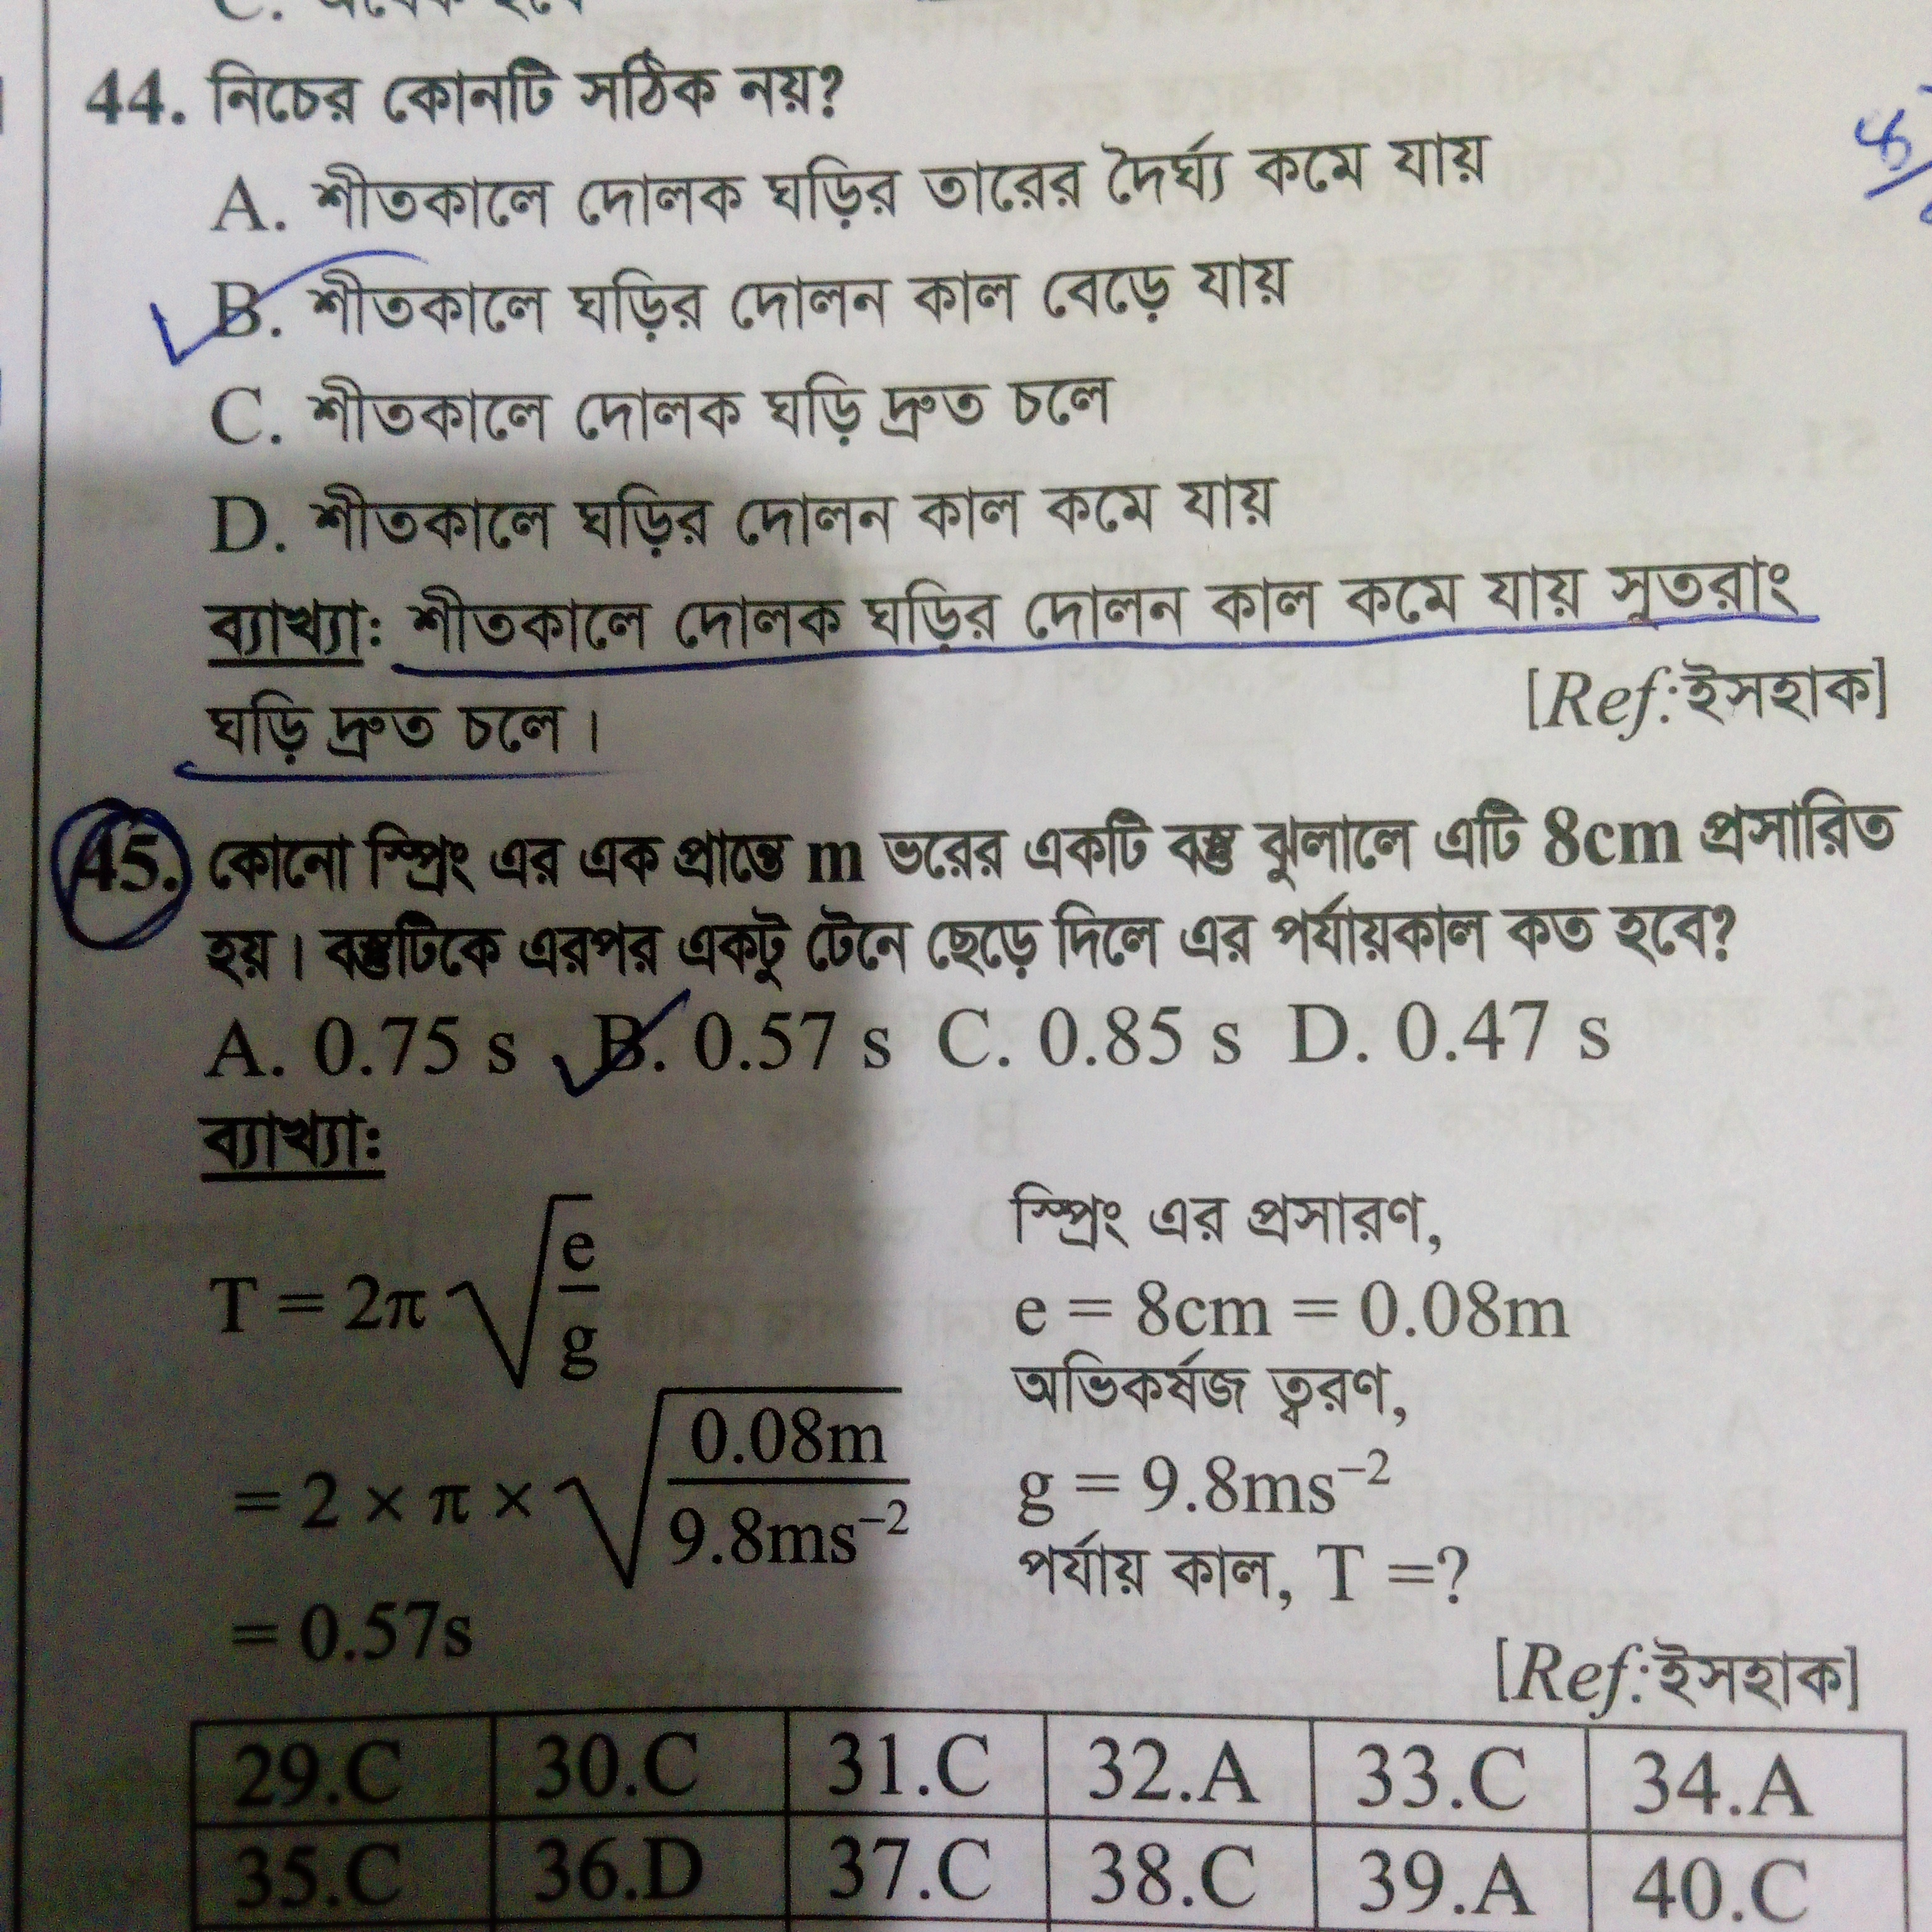 44. নিচের কোনটি সঠিক নয়?
A. শীতকালে দোলক ঘড়ির তারের দৈর্ঘ্য কমে যায়
B. শীতকালে ঘড়ির দোলন কাল বেড়ে যায়
C. শীতকালে দোলক ঘড়ি দ্রুত চলে
D. শীতকালে ঘড়ির দোলন কাল কমে যায়
ব্যাখ্যা: শীতকালে দোলক ঘড়ির দোলন কাল কমে যায় সুতরাং
ঘড়ি দ্রুত চলে। [Ref:ইসহাক]
45. কোনো স্প্রিং এর এক প্রান্তে m ভরের একটি বস্তু ঝুলালে এটি 8cm প্রসারিত
হয়। বস্তুটিকে এরপর একটু টেনে ছেড়ে দিলে এর পর্যায়কাল কত হবে?
A. 0.75 s B. 0.57 s C. 0.85 s D. 0.47 s
ব্যাখ্যা:
T = 2π √(e/g)
= 2 × π × √(0.08m/9.8ms⁻²)
= 0.57s
স্প্রিং এর প্রসারণ,
e = 8cm = 0.08m
অভিকর্ষজ ত্বরণ,
g = 9.8ms⁻²
পর্যায় কাল, T =?
[Ref:ইসহাক]
29.C 30.C 31.C 32.A 33.C 34.A
35.C 36.D 37.C 38.C 39.A 40.C